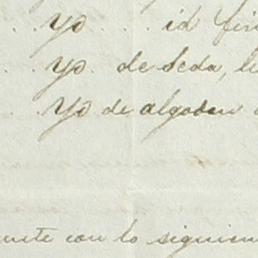 . . yo . . . . id fin
. . yo . de seda, li
. . yo de algodon
ente con lo siguien